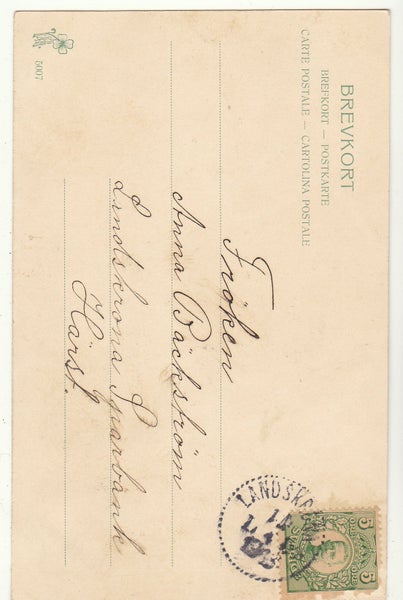 BREVKORT
BREFKORT — POSTKARTE
CARTE POSTALE — CARTOLINA POSTALE
Fröken
Anna Bäckström
Landskrona Sparbank
Härst.
5007
LANDSKRONA
5 5